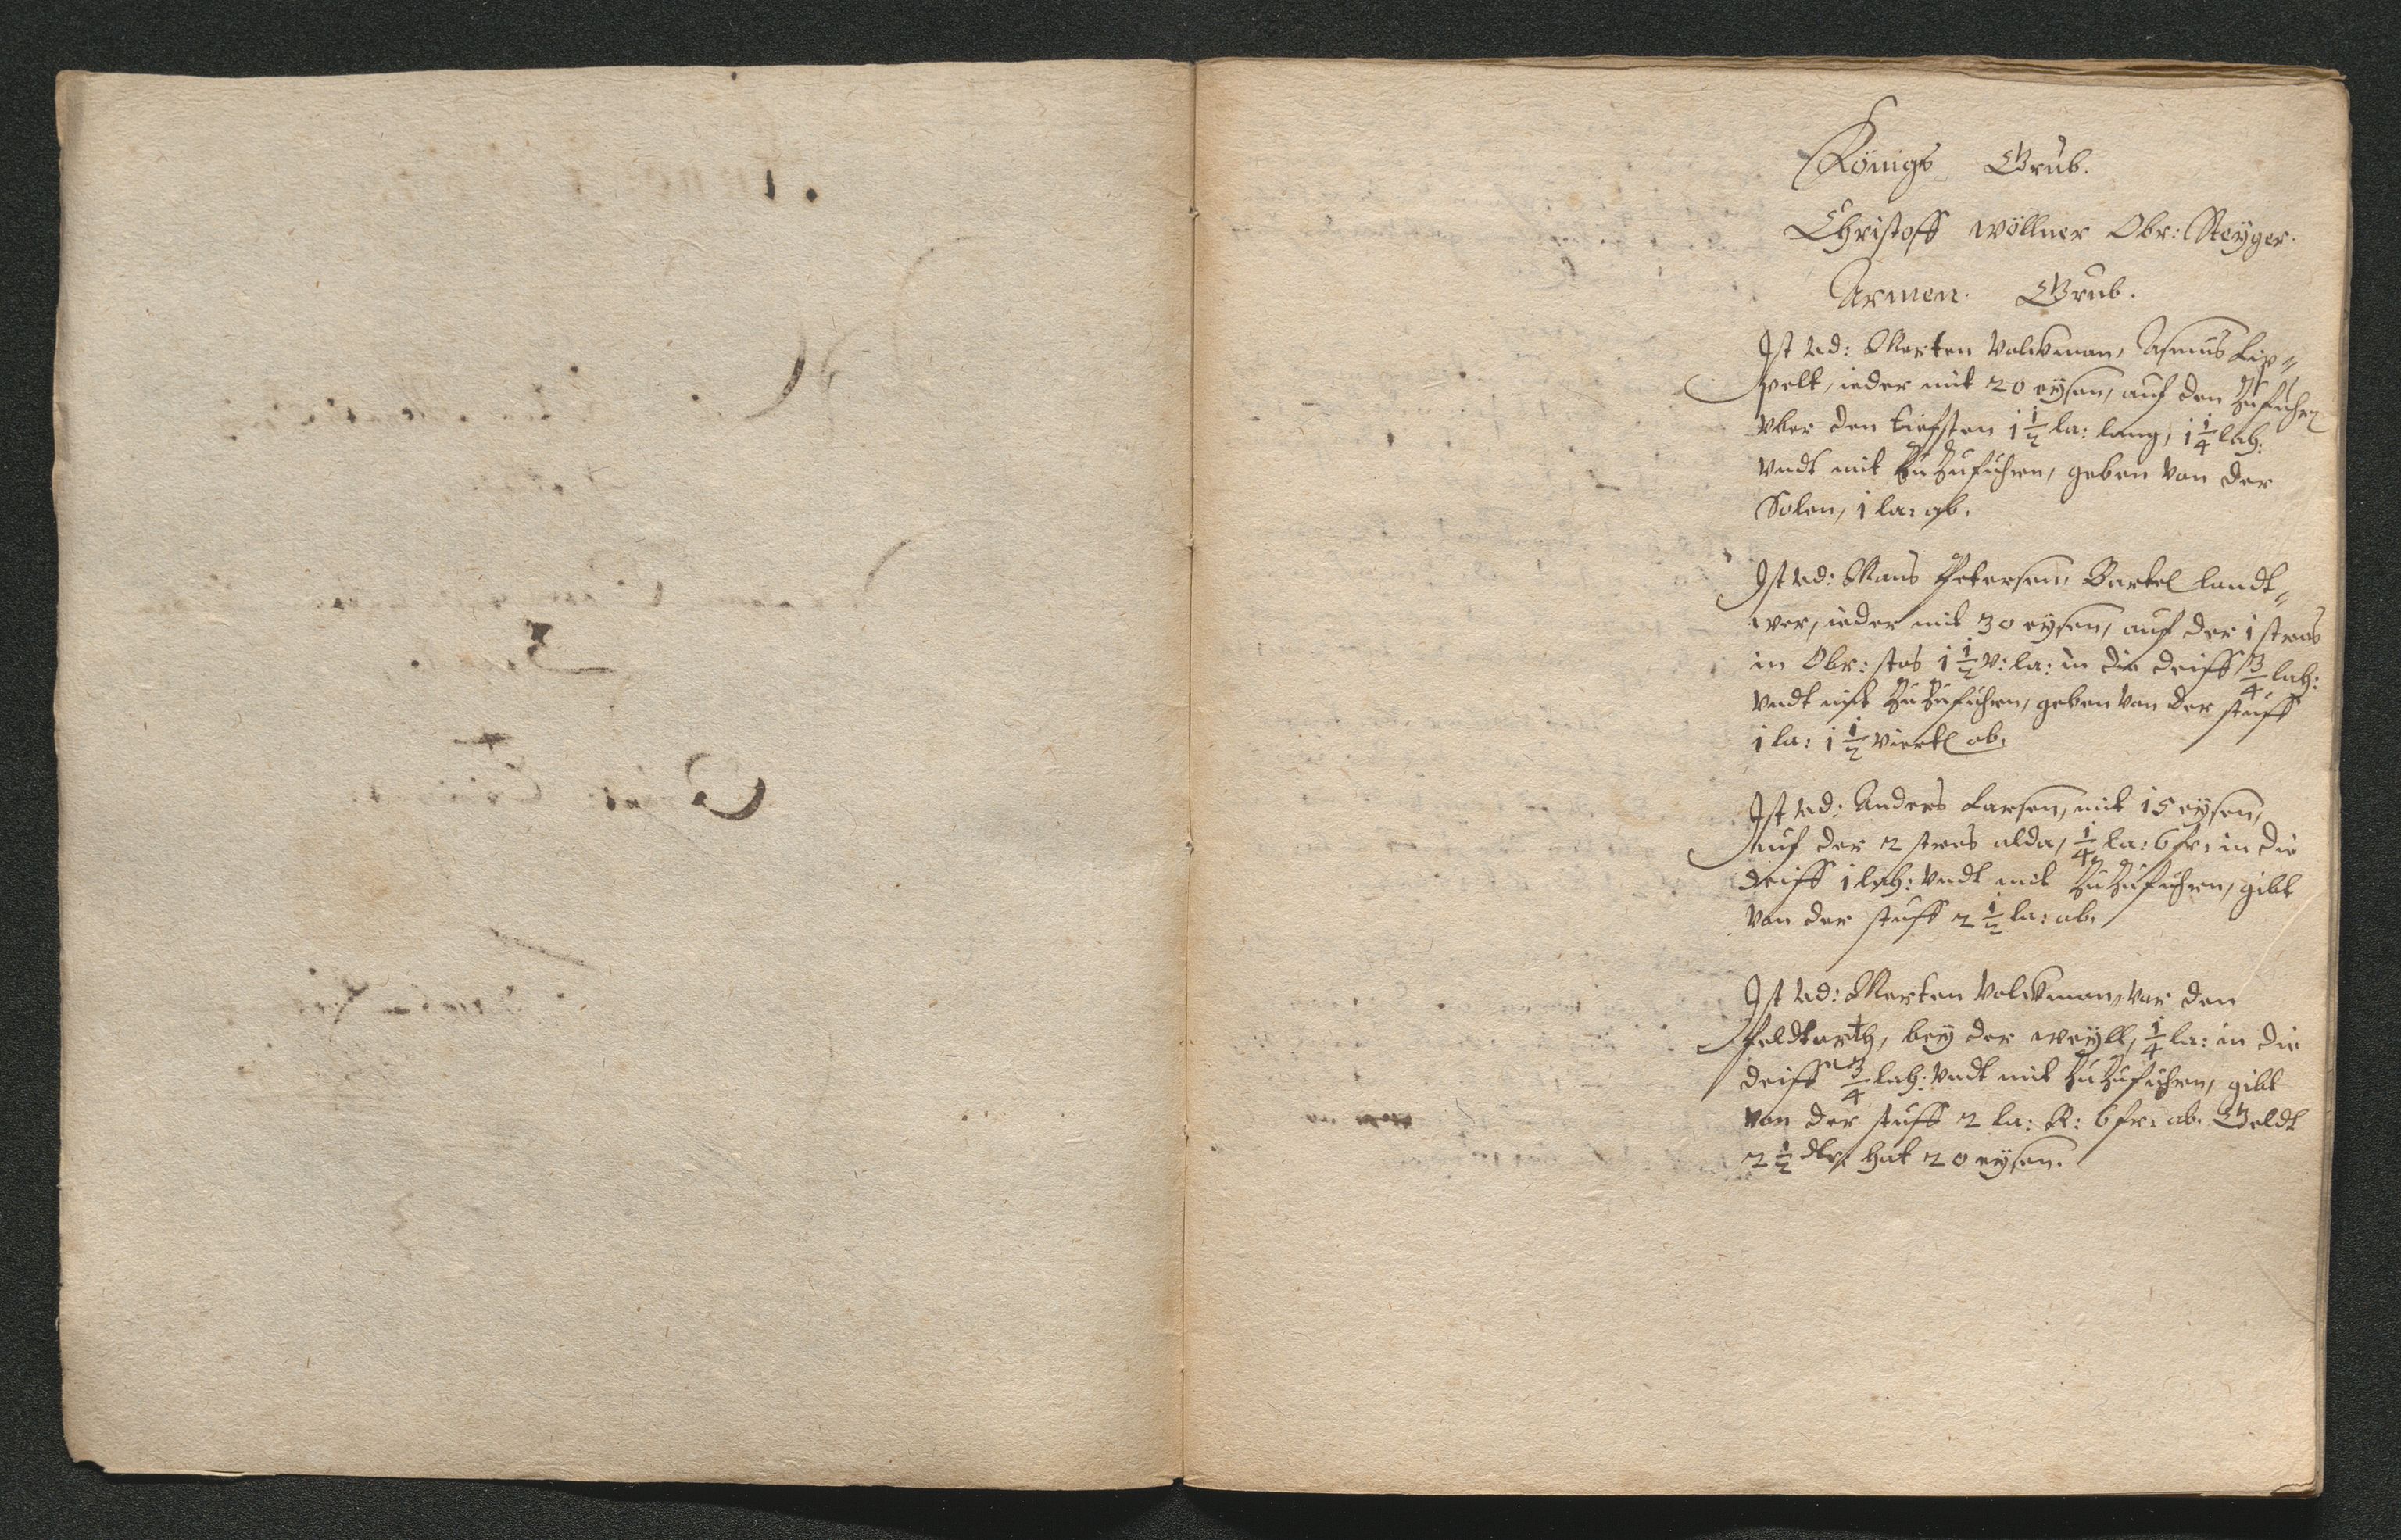 Königs Grub.
Christoff wöllner Obr: Steÿger.
Armen Grub.
Ist ad: Merten Volckman, Asmus Lip„
pelt, ieder mit 20 eÿsen, auf den
Vber den tieffsten 1 1/2 la: lang, 1 1/4 lah:
Vndt mit Zu Zufuhren, geben Von der
Solen, 1 la: ab.
Ist ad: Mans Petersen, Bartel landt„
wer, ieder mit 30 eÿsen, auf der 1 stros
in Obr: stos 1 1/2 v: la: in die deiff 3/4 lah:
Vndt mit Zu Zufuhren, geben Von der stuff
1 la: 1 1/2 Viertl ab.
Ist ad: Anders Larsen, mit 15 eÿsen,
auf der 2 stros alda, 1/4 la: 6 fr: in die
deiff 1 lah: Vndt mit Zu Zufuhren, gibt
Von der stuff 2 1/2 la: ab.
Ist ad: Merten Volckman, Vor den
feldtorth, beÿ der weÿll, 1/4 la: in die
deiff 3/4 lah: Vndt mit Zu Zufuhren, gibt
Von der stuff 2 la: 6 fr: ab. Geldt
2 1/2 dlr: hat 20 eÿsen.